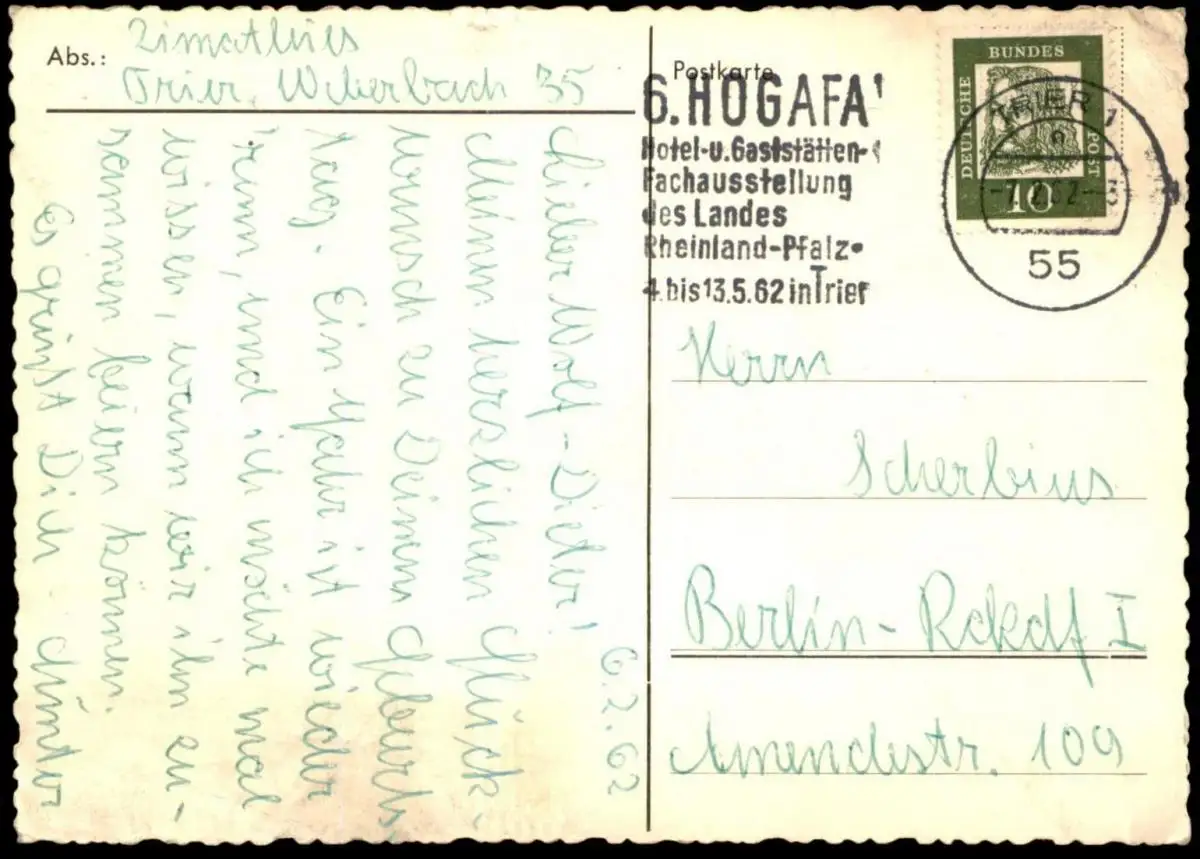 Abs.: Zimathies
Trier, Weberbach 35
6.2.62
Lieber Wolf-Dieter!
Meinen herzlichen Glück-
wunsch zu Deinem Geburts-
tag. Ein Jahr ist wieder
rum, und ich möchte mal
wissen, wann wir ihn zu-
sammen feiern können.
Es grüßt Dich Günter
Postkarte
6. HOGAFA
Hotel-u.Gaststätten-
Fachausstellung
des Landes
Rheinland-Pfalz
4. bis 13.5.62 in Trier
DEUTSCHE BUNDES POST
10
TRIER
55
Herrn
Scherbius
Berlin-Rckdf I
Amendestr. 109